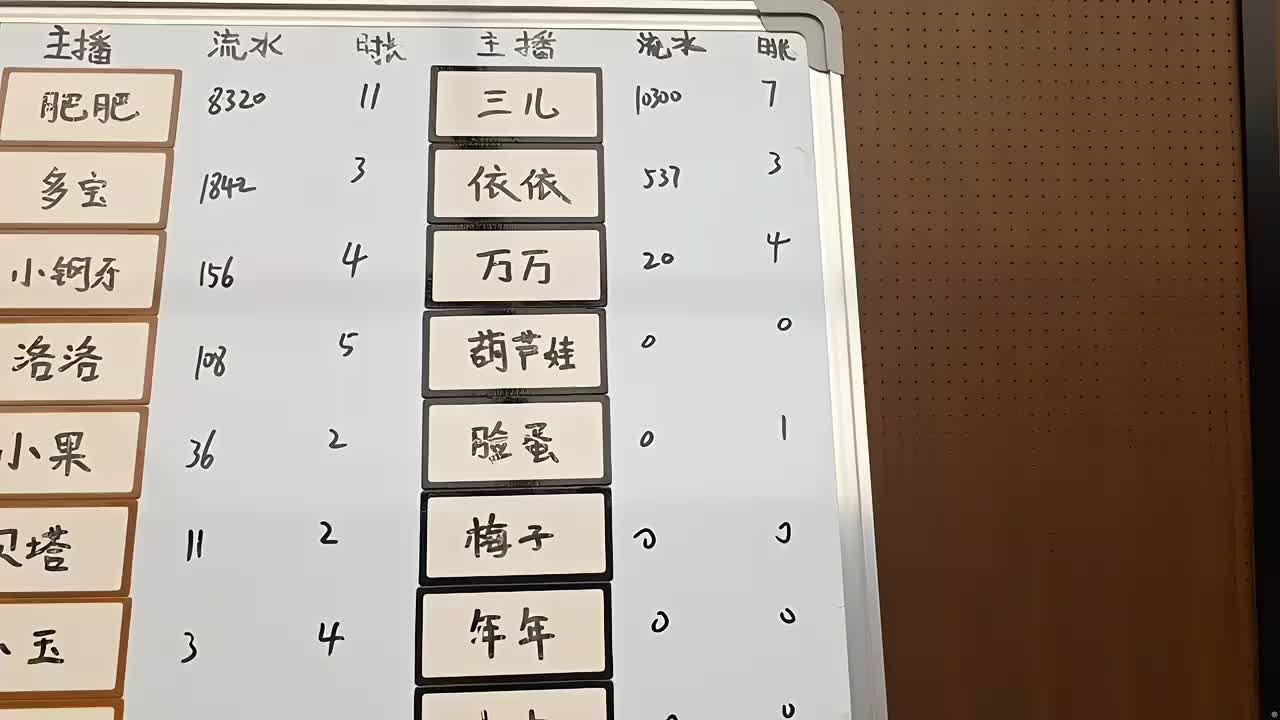 主播 流水 时长 主播 流水 时长
肥肥 8320 11 三儿 10300 7
多宝 1842 3 依依 537 3
小钢牙 156 4 万万 20 4
洛洛 108 5 葫芦娃 0 0
小果 36 2 脸蛋 0 1
贝塔 11 2 梅子 0 0
小玉 3 4 年年 0 0
0